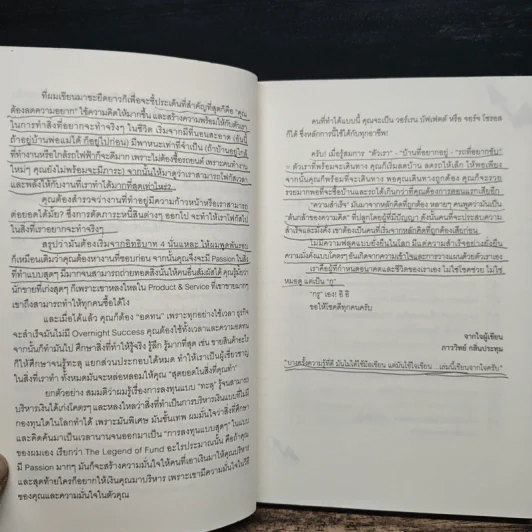 ที่ผมเขียนมาซะยืดยาวก็เพื่อจะชี้ประเด็นที่สำคัญที่สุดก็คือ "คุณ
ต้องลดความอยาก" ใช้ความคิดให้มากขึ้น และสร้างความพร้อมให้กับตัวเรา
ในการทำสิ่งที่อยากจะทำจริงๆ ในชีวิต เริ่มจากมีที่นอนสะอาด (อันนี้
ถ้าอยู่บ้านพ่อแม่ได้ ก็อยู่ไปก่อน) มีพาหนะเท่าที่จำเป็น (ถ้าบ้านอยู่ใกล้
ที่ทำงานหรือใกล้รถไฟฟ้าก็จะดีมาก เพราะไม่ต้องซื้อรถยนต์ เพราะคนทำงาน
ใหม่ๆ คุณยังไม่พร้อมจะมีภาระ) จากนั้นให้มาดูว่าเราสามารถโฟกัสเวลา
และพลังให้กับงานที่เราทำได้มากที่สุดเท่าไหร่
คุณต้องสำรวจว่างานที่ทำอยู่มีความก้าวหน้าหรือเราสามารถ
ต่อยอดได้มั้ย? ซึ่งการตัดภาระหนี้สินต่างๆ ออกไป จะทำให้เราโฟกัสไป
ในสิ่งที่เราอยากจะทำจริงๆ
สรุปว่ามันต้องเริ่มจากอิทธิบาท 4 นั่นแหละ ให้ผมพูดกี่รอบ
ก็เหมือนเดิมว่าคุณต้องหางานที่ชอบก่อน จากนั้นคุณจึงจะมี Passion ในสิ่ง
ที่ทำแบบสุดๆ มีมากจนสามารถถ่ายทอดสิ่งนั้นให้คนอื่นสัมผัสได้ คุณรู้มั้ยว่า
นักขายที่เก่งสุดๆ ก็เพราะเขาหลงใหลใน Product & Service ที่เขาขายมากๆ
เขาถึงสามารถทำให้ทุกคนซื้อได้ไง
และเมื่อได้แล้ว คุณก็ต้อง "อดทน" เพราะทุกอย่างใช้เวลา ธุรกิจ
จะสำเร็จมันไม่มี Overnight Success คุณต้องใช้ทั้งเวลาและความอดทน
จากนั้นก็ทำมันไป ศึกษาสิ่งที่ทำให้รู้จริง รู้ลึก รู้มากที่สุด เช่น ขายสินค้าอะไร
ก็ให้ศึกษาจนรู้ทะลุ แยกส่วนประกอบได้หมด ทำให้เราเป็นผู้เชี่ยวชาญ
ในสิ่งที่เราทำ ทั้งหมดมันจะหล่อหลอมให้คุณ "สุดยอดในสิ่งที่คุณทำ"
ยกตัวอย่าง สมมติว่าผมรู้เรื่องการลงทุนแบบ "ทะลุ" รู้จนสามารถ
บริหารเงินได้เก่งโคตรๆ และหลงใหลว่าสิ่งที่ทำเป็นการบริหารเงินแบบที่ไม่มี
กองทุนใดในโลกทำได้ เพราะมันพิเศษ มันขั้นเทพ ผมมั่นใจว่าสิ่งที่ศึกษา
และคิดค้นมาเป็นเวลานานจนออกมาเป็น "การลงทุนแบบสุดๆ" ในแบบ
ของผมเอง เรียกว่า The Legend of Fund อะไรประมาณนั้น คือถ้าคุณ
มี Passion มากๆ มันก็จะสร้างความมั่นใจให้คนที่เอาเงินมาให้คุณบริหาร
และสุดท้ายใครก็อยากให้เงินคุณมาบริหาร เพราะเขามีความมั่นใจในวิธี
ของคุณและความมั่นใจในตัวคุณ
คนที่ทำได้แบบนี้ คุณจะเป็น วอร์เรน บัฟเฟตต์ หรือ จอร์จ โซรอส
ก็ได้ ซึ่งหลักการนี้ใช้ได้กับทุกอาชีพ!
ครับ! เมื่อรู้สมการ "ตัวเรา" - "บ้านที่อยากอยู่" - "รถที่อยากขับ"
= ตัวเราที่พร้อมจะเดินทาง คุณก็เริ่มลดบ้าน ลดรถให้เล็ก ให้พอเพียง
จากนั้นคุณก็พร้อมที่จะเดินทาง พอคุณเดินทางถูกต้อง คุณก็จะรวย
รวยมากพอที่จะซื้อบ้านและรถได้เกินกว่าที่คุณต้องการตอนแรกเสียอีก
"ความสำเร็จ" มันมาจากหลักคิดที่ถูกต้อง หลายๆ คนพูดว่ามันเป็น
"ต้นกล้าของความคิด" ที่ปลูกโดยผู้ที่มีปัญญา ดังนั้นคนที่จะประสบความ
สำเร็จและมั่งคั่ง เขาต้องเป็นคนที่เริ่มจากหลักคิดที่ถูกต้องเสียก่อน
ไม่มีความฟลุคแบบยั่งยืนในโลก มีแต่ความสำเร็จอย่างยั่งยืน
ความมั่งคั่งแบบโคตรๆ อันเกิดจากความเข้าใจและการวางแผนด้วยตัวเราเอง
เราคือผู้ที่กำหนดอนาคตและชีวิตของเราเอง ไม่ใช่โชคช่วย ไม่ใช่
หมอดู แต่เป็น "กู"
"กรู" เอง! อิ อิ
ขอให้โชคดีทุกคนครับ
จากใจผู้เขียน
ภาววิทย์ กลิ่นประทุม
"บางครั้งความรู้ที่ดี มันไม่ได้ใช้มือเขียน แต่มันใช้ใจเขียน ...เล่มนี้เขียนจากใจครับ"